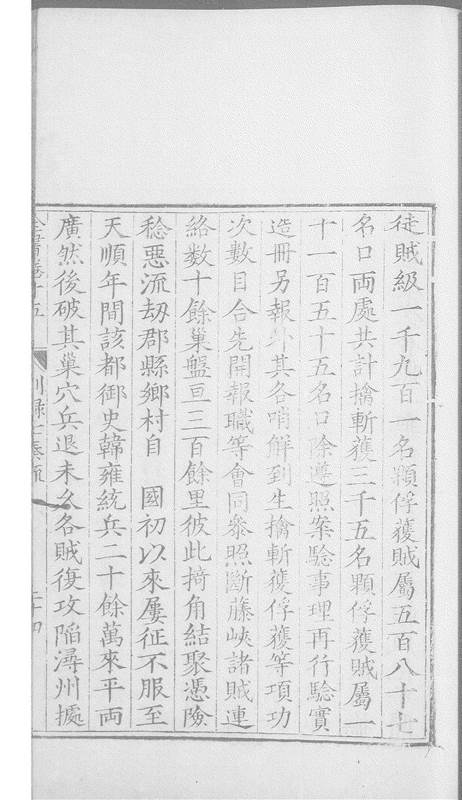 徒賊級一千九百一名顆俘獲賊屬五百八十七
名口兩處共計擒斬獲三千五名顆俘獲賊屬一
十一百五十五名口除遵照案驗事理再行驗實
造冊另報外其各哨觧到生擒斬獲俘獲等項功
次數目合先開報職等會同叅照斷藤峽諸賊連
絡数十餘巢盤亘三百餘里彼此掎角結聚憑險
稔惡流刼郡縣鄉村自 國初以來屢征不服至
天順年間該都御史韓雍統兵二十餘萬來平兩
廣然後破其巢穴兵退未久各賊復攻陷潯州據
全書卷十五 别録七奏疏 二十四